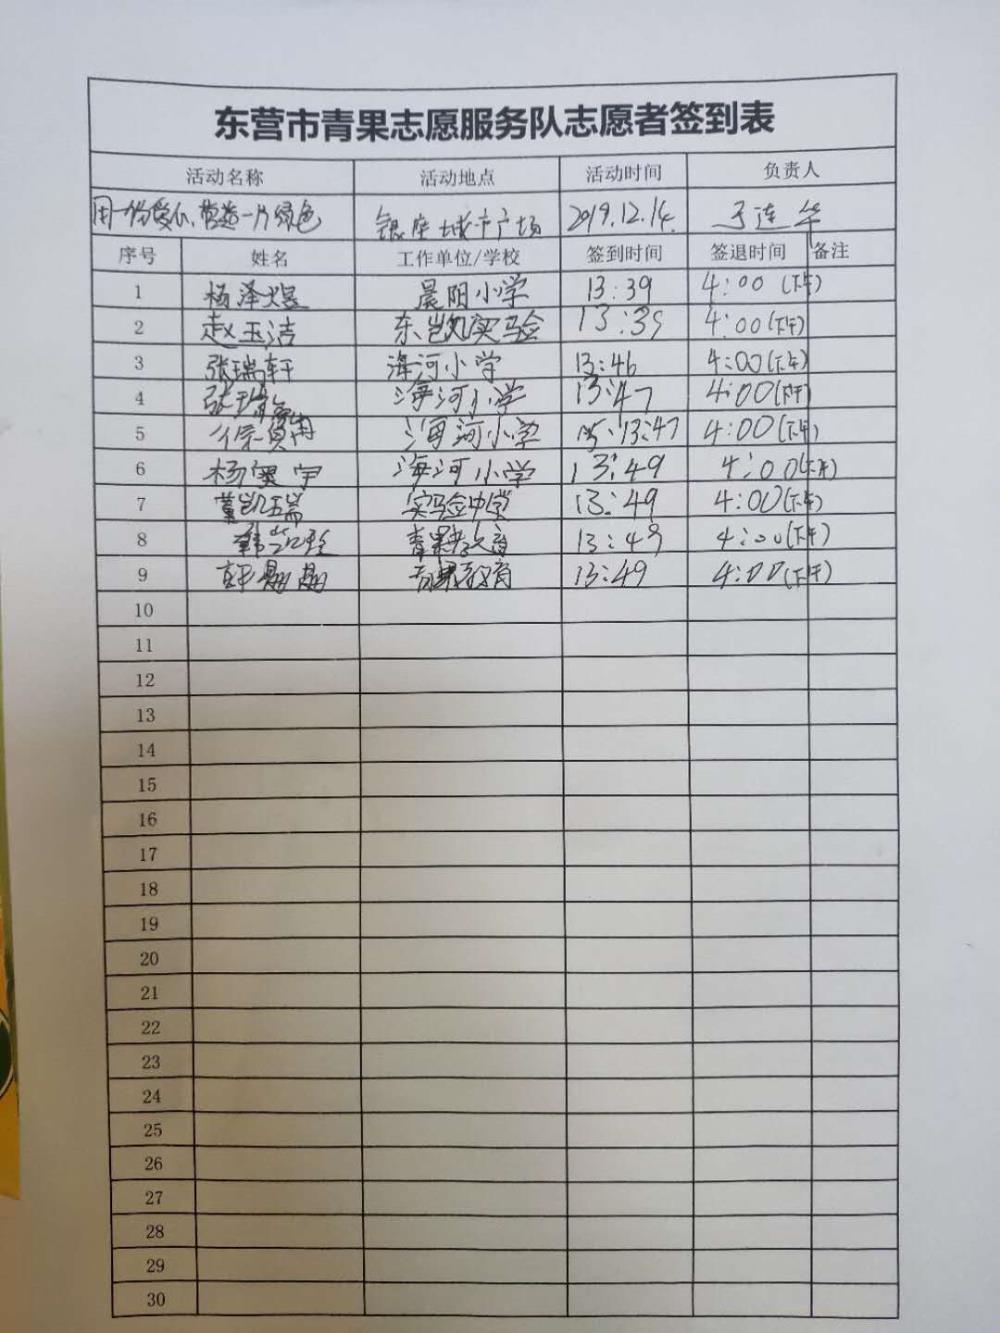 东营市青果志愿服务队志愿者签到表
活动名称 活动地点 活动时间 负责人
用一份爱心、营造一片绿色 银座城市广场 2019.12.14. 连华
序号 姓名 工作单位/学校 签到时间 签退时间 备注
1 杨泽煜 晨阳小学 13:39 4:00 (下午)
2 赵玉洁 东凯实验 13:39 4:00(下午)
3 张瑞轩 海河小学 13:46 4:00(下午)
4 张瑞 海河小学 13:47 4:00(下午)
5 徐 海河小学 13:47 4:00(下午)
6 杨 宇 海河小学 13:49 4:00(下午)
7 董凯瑞 实验中学 13:49 4:00(下午)
8 韩 青果教育 13:49 4:00(下午)
9 青果教育 13:49 4:00(下午)
10
11
12
13
14
15
16
17
18
19
20
21
22
23
24
25
26
27
28
29
30